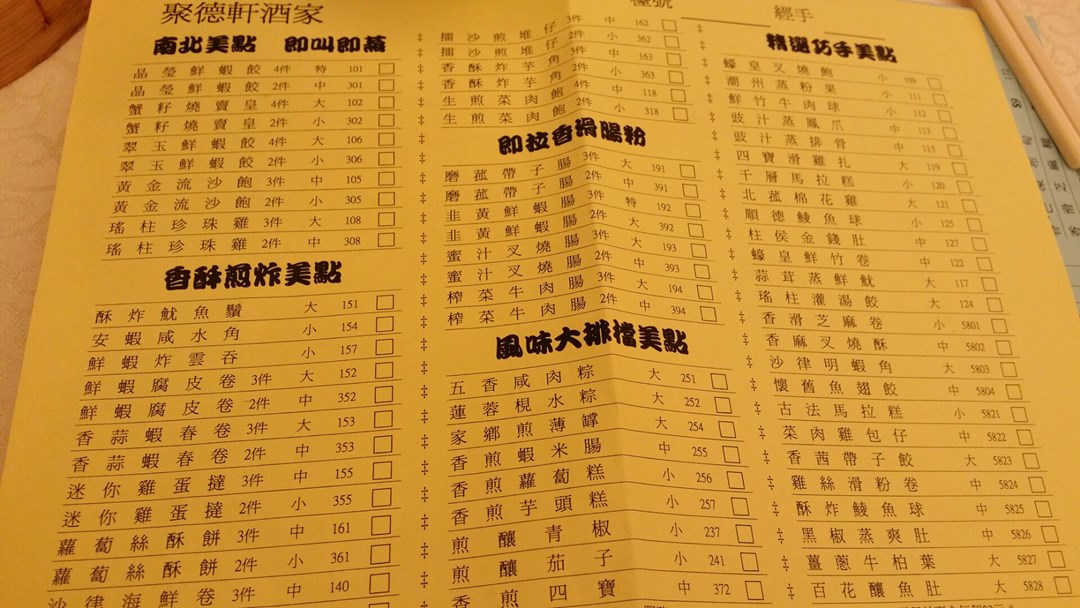 聚德軒酒家
經手
南北美點 即叫即蒸
晶瑩鮮蝦餃 4件 特 101
晶瑩鮮蝦餃 2件 中 301
蟹籽燒賣皇 4件 大 102
蟹籽燒賣皇 2件 小 302
翠玉鮮蝦餃 4件 大 106
翠玉鮮蝦餃 2件 小 306
黃金流沙飽 3件 中 105
黃金流沙飽 2件 小 305
瑤柱珍珠雞 3件 大 108
瑤柱珍珠雞 2件 中 308
香酥煎炸美點
酥炸魷魚鬚 大 151
安蝦咸水角 小 154
鮮蝦炸雲吞 小 157
鮮蝦腐皮卷 3件 大 152
鮮蝦腐皮卷 2件 中 352
香蒜蝦春卷 3件 大 153
香蒜蝦春卷 2件 中 353
迷你雞蛋撻 3件 中 155
迷你雞蛋撻 2件 小 355
蘿蔔絲酥餅 3件 中 161
蘿蔔絲酥餅 2件 小 361
沙律海鮮卷 3件 中 140
擂沙煎堆仔 3件 中 162
擂沙煎堆仔 2件 小 362
香酥炸芋角 3件 中 163
香酥炸芋角 2件 小 363
生煎菜肉飽 4件 中 118
生煎菜肉飽 2件 小 318
即拉香滑腸粉
磨菰帶子腸 3件 大 191
磨菰帶子腸 2件 中 391
韭黃鮮蝦腸 3件 特 192
韭黃鮮蝦腸 2件 大 392
蜜汁叉燒腸 3件 大 193
蜜汁叉燒腸 2件 中 393
榨菜牛肉腸 3件 大 194
榨菜牛肉腸 2件 中 394
風味大排檔美點
五香咸肉粽 大 251
蓮蓉梘水粽 大 252
家鄉煎薄罉 大 254
香煎蝦米腸 中 255
香煎蘿蔔糕 小 256
香煎芋頭糕 小 257
煎釀青椒 小 237
煎釀茄子 小 241
煎釀四寶 中 372
精選巧手美點
蠔皇叉燒飽 小 109
潮州蒸粉果 小 111
鮮竹牛肉球 小 112
豉汁蒸鳳爪 中 113
豉汁蒸排骨 中 115
四寶滑雞扎 大 119
千層馬拉糕 小 120
北菰棉花雞 大 121
順德鯪魚球 小 125
柱侯金錢肚 中 127
蠔皇鮮竹卷 中 122
蒜茸蒸鮮魷 大 117
瑤柱灌湯餃 大 124
香滑芝麻卷 小 5801
香麻叉燒酥 中 5802
沙律明蝦角 大 5803
懷舊魚翅餃 中 5804
古法馬拉糕 小 5821
菜肉雞包仔 中 5822
香茜帶子餃 大 5823
雞絲滑粉卷 中 5824
酥炸鯪魚球 中 5825
黑椒蒸爽肚 中 5826
薑蔥牛柏葉 大 5827
百花釀魚肚 大 5828